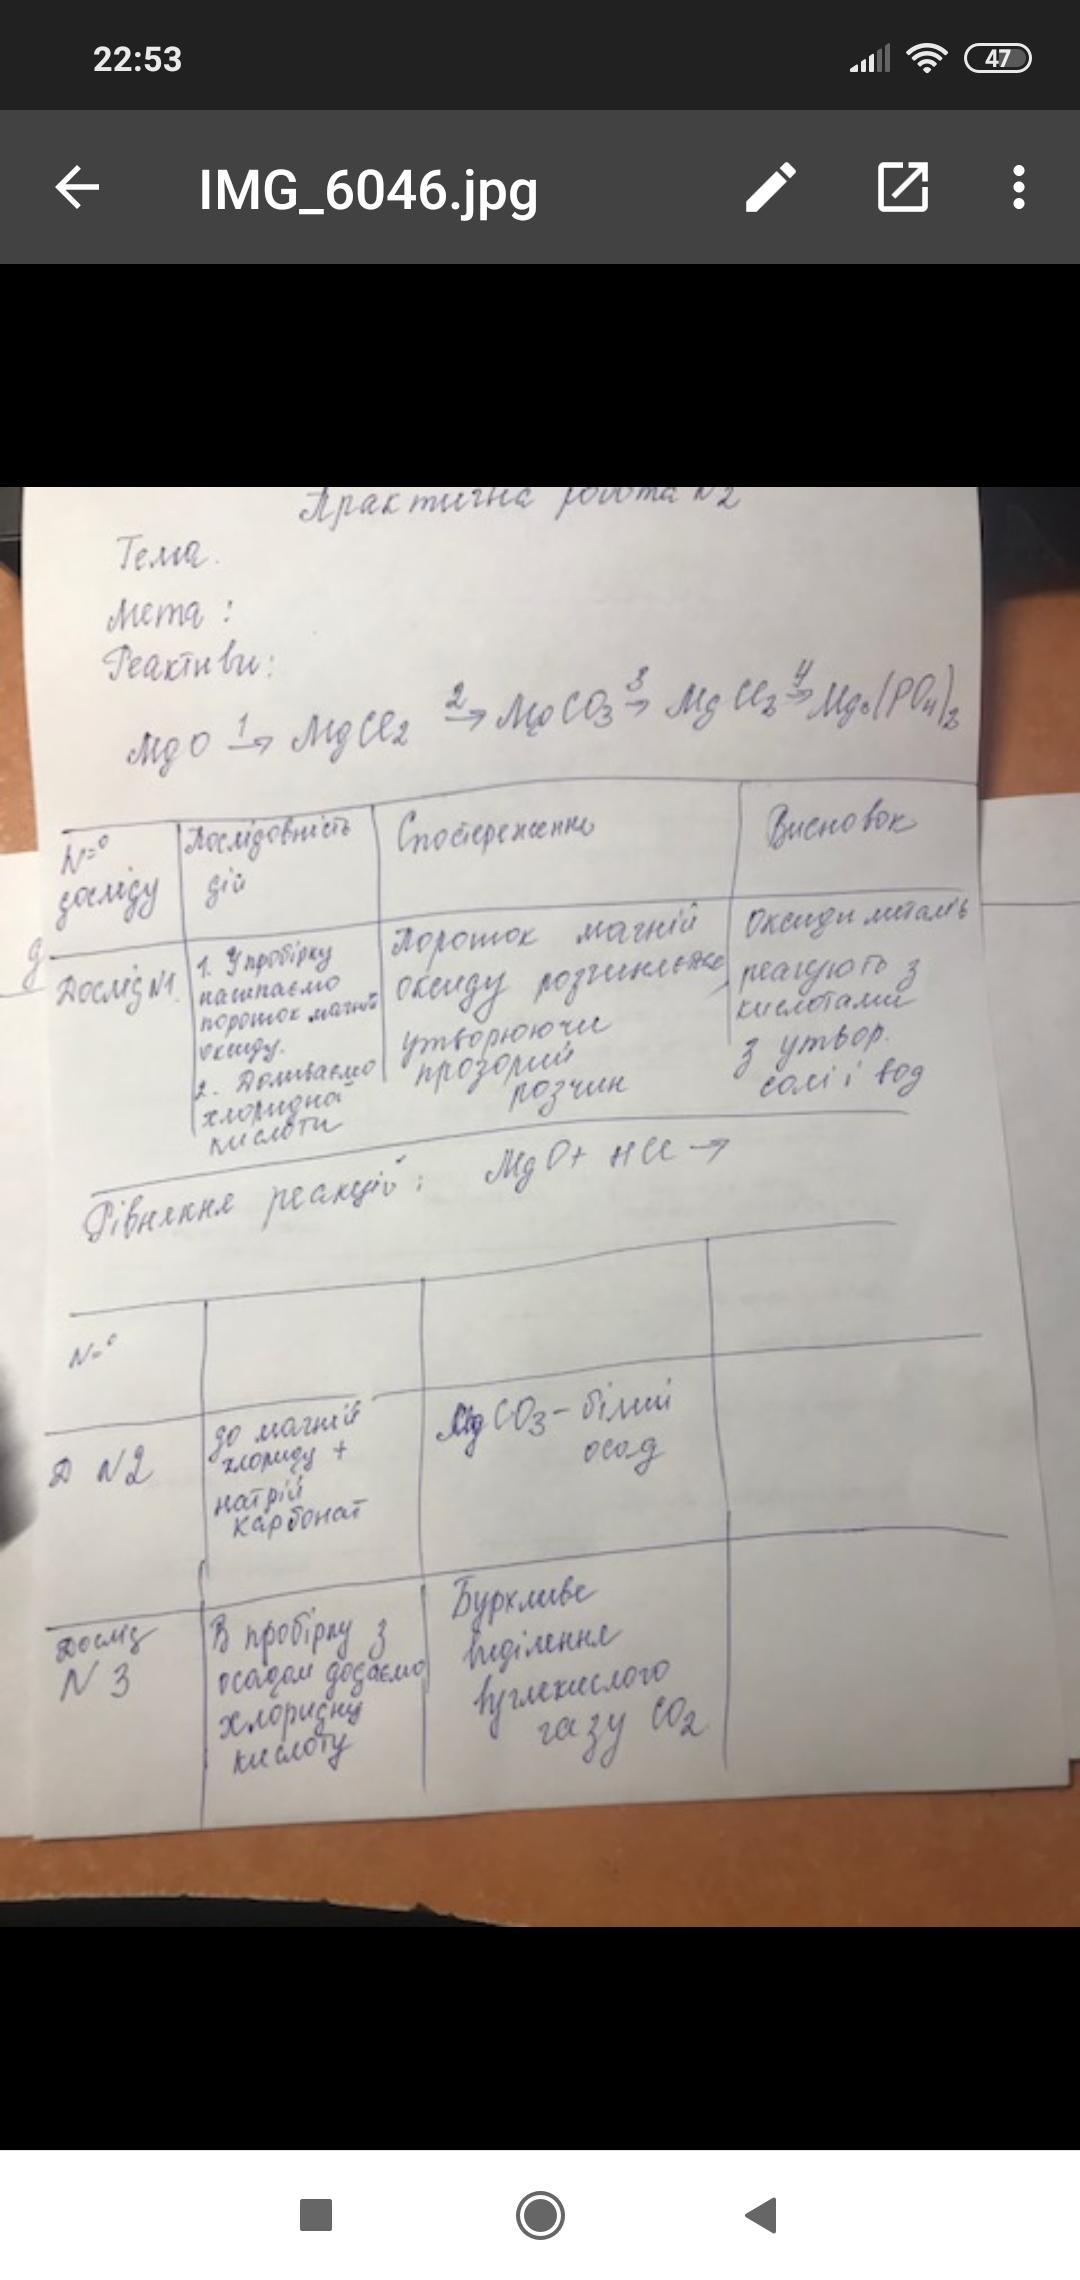 22:53
47
IMG_6046.jpg
Практична робота №2
Тема.
Мета:
Реактиви:
MgO 1→ MgCl2 2→ MgCO3 3→ MgCl2 4→ Mg3(PO4)2
N=o досліду
Послідовність дій
Спостереження
Висновок
Дослід N1.
1. У пробірку
насипаємо
порошок магній
оксиду.
2. Доливаємо
хлоридна
кислоти
Порошок магній
оксиду
утворюючи
прозорий
розчин
Оксиди металів
реагують з
кислотами
з утвор.
солі і вод
Рівняння реакцій: MgO + HCl →
N=o
Д N2
до магній
хлориду +
натрій
карбонат
MgCO3 - білий
осад
Дослід
N 3
В пробірку з
осадом додаємо
хлоридну
кислоту
Бурхливе
виділення
вуглекислого
газу CO2